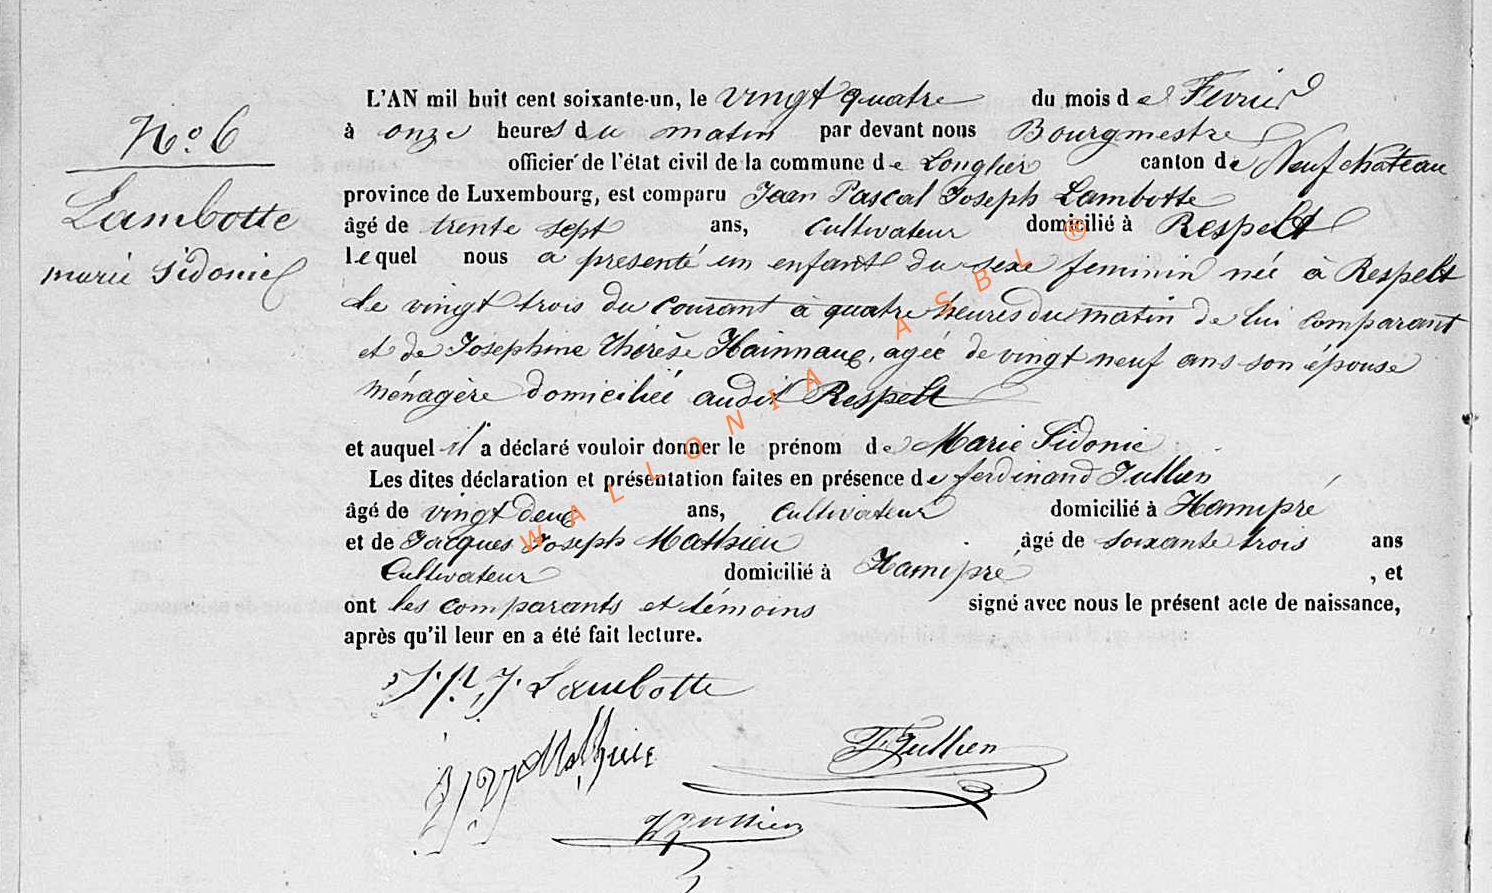 N.o 6
Lambotte
marie Sidonie
L'AN mil huit cent soixante-un, le vingt quatre du mois de Fevrier
à onze heures du matin par devant nous Bourgmestre
officier de l'état civil de la commune de Longlier canton de Neufchâteau
province de Luxembourg, est comparu Jean Pascal Joseph Lambotte
âgé de trente sept ans, cultivateur domicilié à Respelt
lequel nous a présenté un enfant du sexe feminin née à Respelt
le vingt trois du courant à quatre heures du matin de lui comparant
et de Joséphine Thérèse Hainnaux, agée de vingt neuf ans son épouse
ménagère domiciliée audit Respelt
et auquel il a déclaré vouloir donner le prénom de Marie Sidonie
Les dites déclaration et présentation faites en présence de ferdinand Jullien
âgé de vingt deux ans, cultivateur domicilié à Hamipré
et de Jacques Joseph Mathieu âgé de soixante trois ans
Cultivateur domicilié à Hamipré , et
ont les comparants et témoins signé avec nous le présent acte de naissance,
après qu'il leur en a été fait lecture.
J. P. J. Lambotte
J. J. Mathieu
F. Jullien
Jullien
WALLONIA ASBL ®